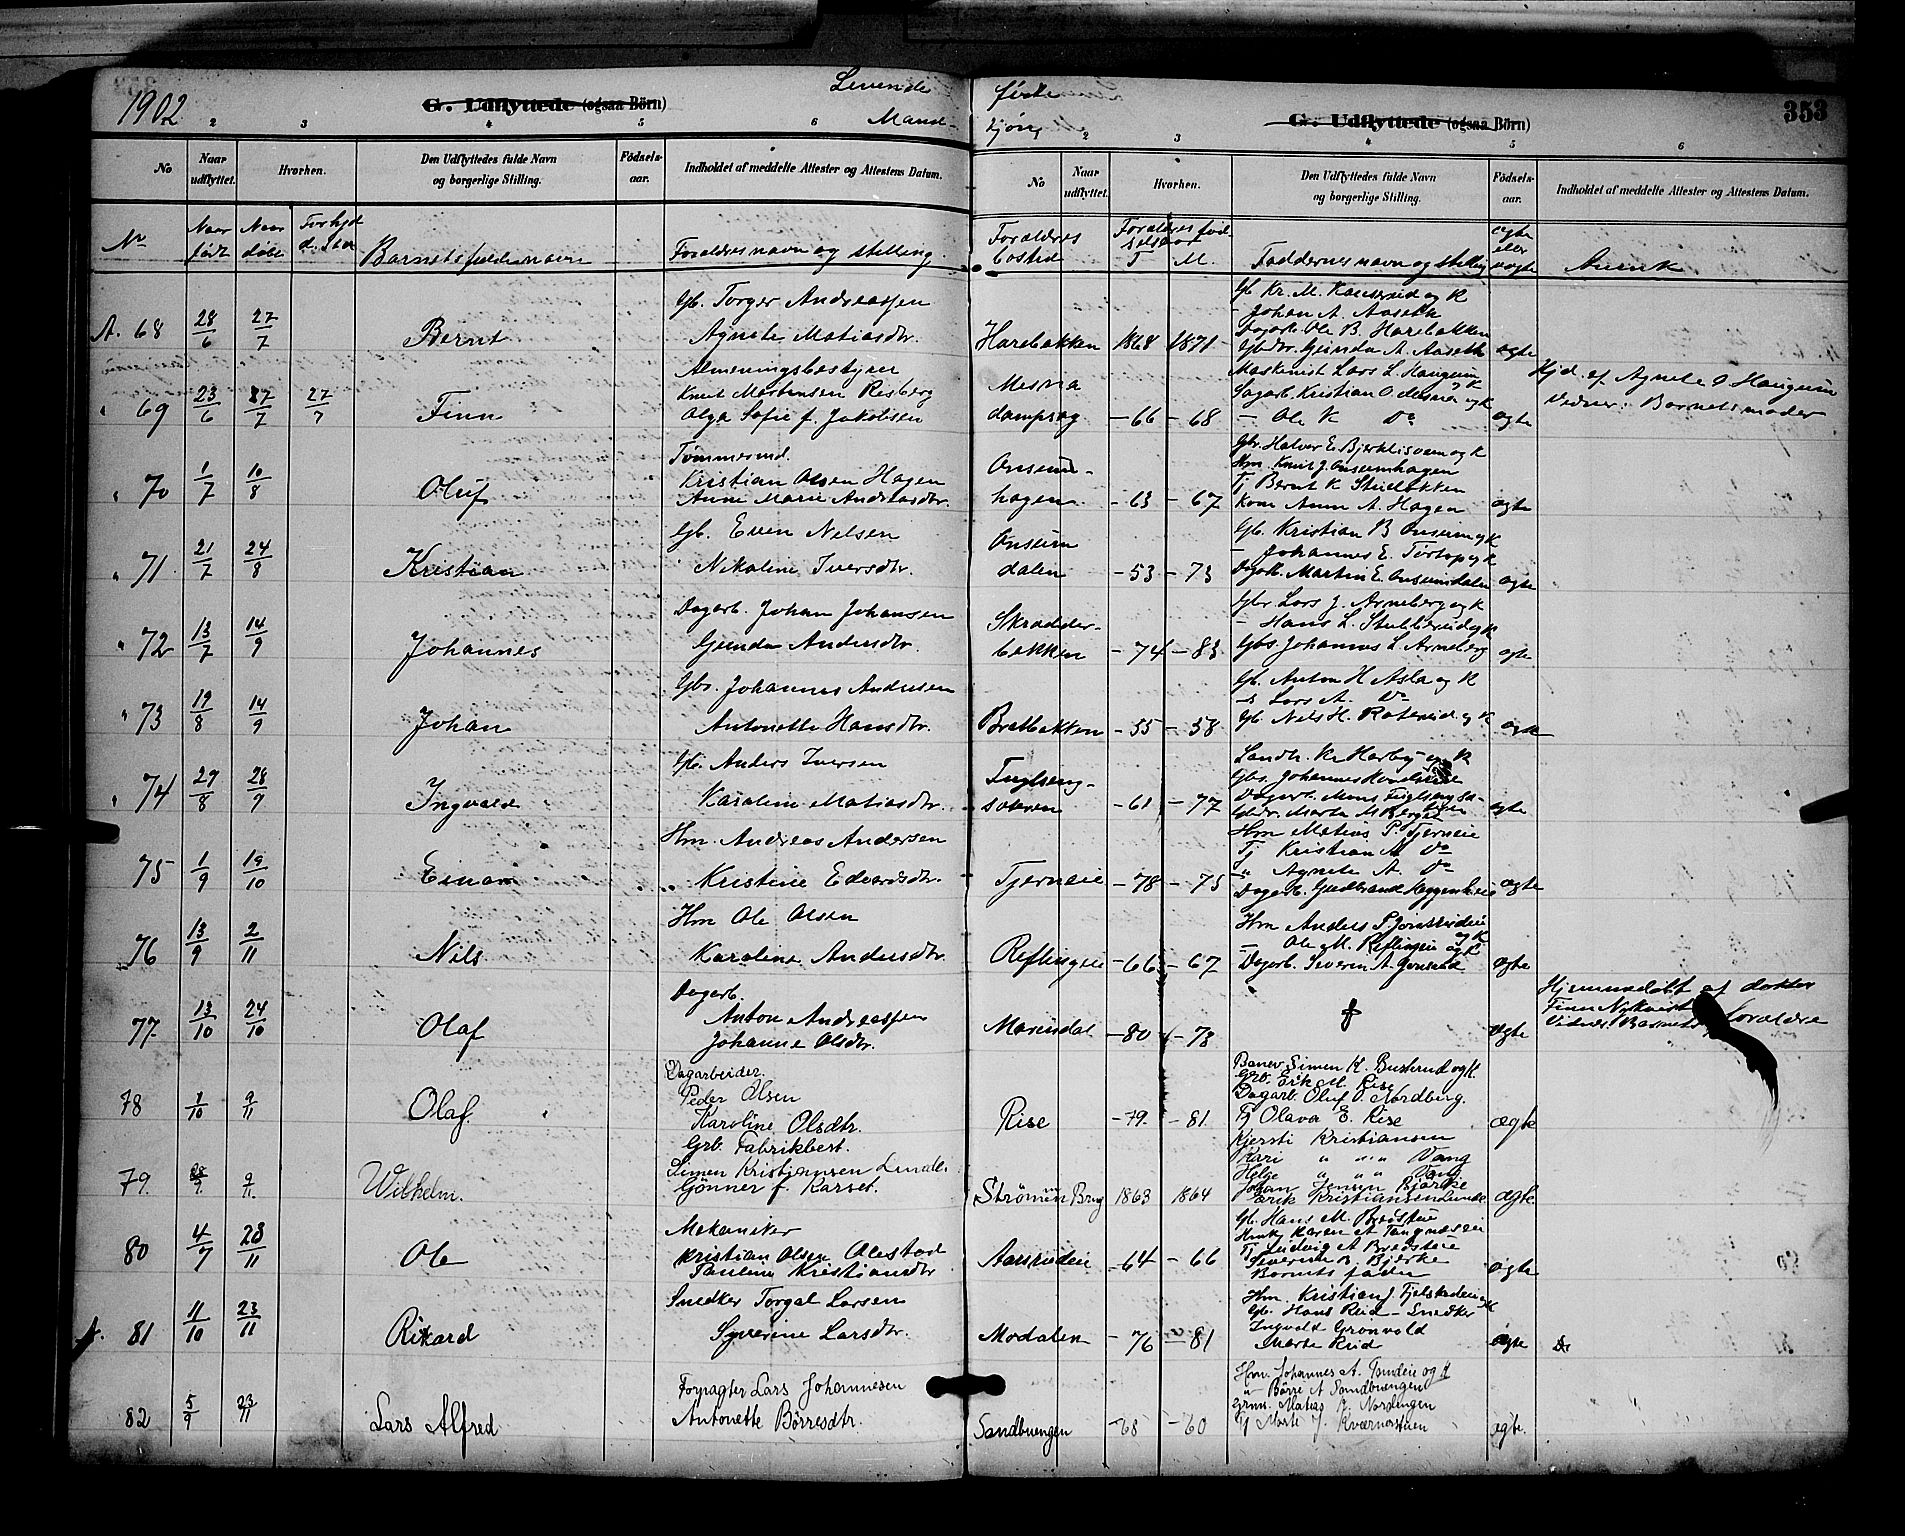 1902
G. Udflyttede (ogsaa Börn)
Levende
Mand-
2 3 4 5 6
No
Naar udflyttet.
Hvorhen.
Den Udflyttedes fulde Navn og borgerlige Stilling.
Födsels-aar.
Indholdet af meddelte Attester og Attestens Datum.
No Naar født Naar døbt Barnets fulde navn Forældres navn og stilling
A. 68 28/6 27/7 Bernt Gb. Torger Andreassen
Agnete Matiasdtr.
" 69 23/6 27/7 27/7 Finn Almeningsbestyrer
Knut Mortensen Risberg
Olga Sofie f. Jakobsen
" 70 1/7 10/8 Oluf Tømmermd.
Kristian Olsen Hagen
Anne Marie Andreasdtr.
" 71 21/7 24/8 Kristian Gb. Even Nelsen
Nikoline Iversdtr.
" 72 13/7 14/9 Johannes Dagarb. Johan Johansen
Gunda Andersdtr.
" 73 19/8 14/9 Johan Gbr. Johannes Andresen
Antonette Hansdtr.
" 74 29/8 28/9 Ingvald Gb. Anders Iversen
Karoline Matiasdtr.
75 1/9 19/10 Einar Hm. Andreas Andersen
Kristine Edvardsdtr.
76 13/9 2/11 Nils Hm Ole Olsen
Karoline Andersdtr.
77 13/10 24/10 Olaf Dagarb.
Anton Andreassen
Johanne Olsdtr.
78 1/10 9/11 Olaf. Dagarbeider.
Peder Olsen
Karoline Olsdtr.
79. 28/9 9/11 Wilhelm. Grb. Fabrikbest.
Simen Kristiansen Lunde.
Gønner f. Karset.
80 4/7 23/11 Ole Mekaniker
Kristian Olsen Olestad
Pauline Kristiansdtr
A. 81 11/10 23/11 Rikard Snedker Torgal Larsen
Syverine Larsdtr.
82 5/9 23/11 Lars Alfred Forpagter Lars Johannesen
Antonette Børresdtr.
fødte
kjøn,
G. Udflyttede (ogsaa Börn)
353
2 3 4 5 6
No
Naar udflyttet.
Hvorhen.
Den Udflyttedes fulde Navn og borgerlige Stilling.
Födsels-aar.
Indholdet af meddelte Attester og Attestens Datum.
Forældres bosted
Forældres fødselsaar F M.
Faddernes navn og stilling
ægte eller uægte
Anmk
Harebakken 1868 1871 Gb Kr. M. Kanserud og K
- Johan A. Aaseth
Dagarb. Ole B. Harebakken
Gbdtr. Gunda A. Aaseth ægte
Mesna dampsag - 66 - 68 Maskinist Lars L. Haugerun og K
Sagarb. Kristian O Mesna og K
- Ole K Do ægte
Hjd. af Agnete O Haugerun
Vidner: Barnets moder
Onsum-
hagen - 63 - 67
Hm. Knut J. Onsumhagen
Tj Bernt K Stubakken
Kone Anne A. Hagen ægte
Onsum
dalen - 53 - 73 Gb. Kristian B Onsum og K
- Johannes E. Tørtop og K
Dagarb. Martin E. Onsumdalen ægte
Skrædder-
bakken - 74 - 83 Gbr Lars J. Arneberg og K
- Hans L. Stubberud og K
Gbs. Johannes L. Arneberg ægte
Brætbakken - 55 - 58 Gb. Anton H. Asla og K
- Lars A. Do
Gb. Nels H. Roterud og K ægte
Fuglseng-
sæteren - 61 - 77
Gbs. Johannes
Dagarb. Mons Fuglsengsæ-
teren
Gbdtr. Marta M Berget ægte
Tjerneie - 78 - 75 Hm Matias P. Tjerneie
Tj Kristian M Do
" Agnete A. Do
Dagarb. Gudbrand Heggenhaug ægte
Reflingeie - 66 - 67 Hm Anders P.
og K
- Ole M. Reflingeie og K
Dagarb. Severin A. ægte
Marindal - 80 - 73 † ægte
Hjemmedøbt af doktor
Finn Nykvist
Vidner: Barnets forældre
Rise - 79. - 81 Simen K. Busterud og K.
Grb. Erik M. Rise
Dagarb. Oluf O. Nordberg.
Tj Olava E. Rise ægte
Strømmen Brug 1863 1864 Kjersti Kristiansen
Kari " " " Vang
Helge " " " Vang
Johan Jensen Bjørke
Kristiansen Lunde ægte
Aasrudeie - 64 - 66 Gb. Hans M. Bredsteie
Karen A Tangnæseie
Tj Ludvig A Bredsteie
Severine R. Bjerke
Barnets fader ægte
Modalen - 76 - 81 Hm. Kristian J. Fjelstadeie og K
Gb. Hans Reid - Snedker
Ingvald Grønvold
Marte Reid ægte
Sandbuengen - 68 - 60 Hm. Johannes A. og K
" Børre A Sandbuengen
Grm. Matias J. Nordengen
Tj Marte J. Kværnestuen ægte.